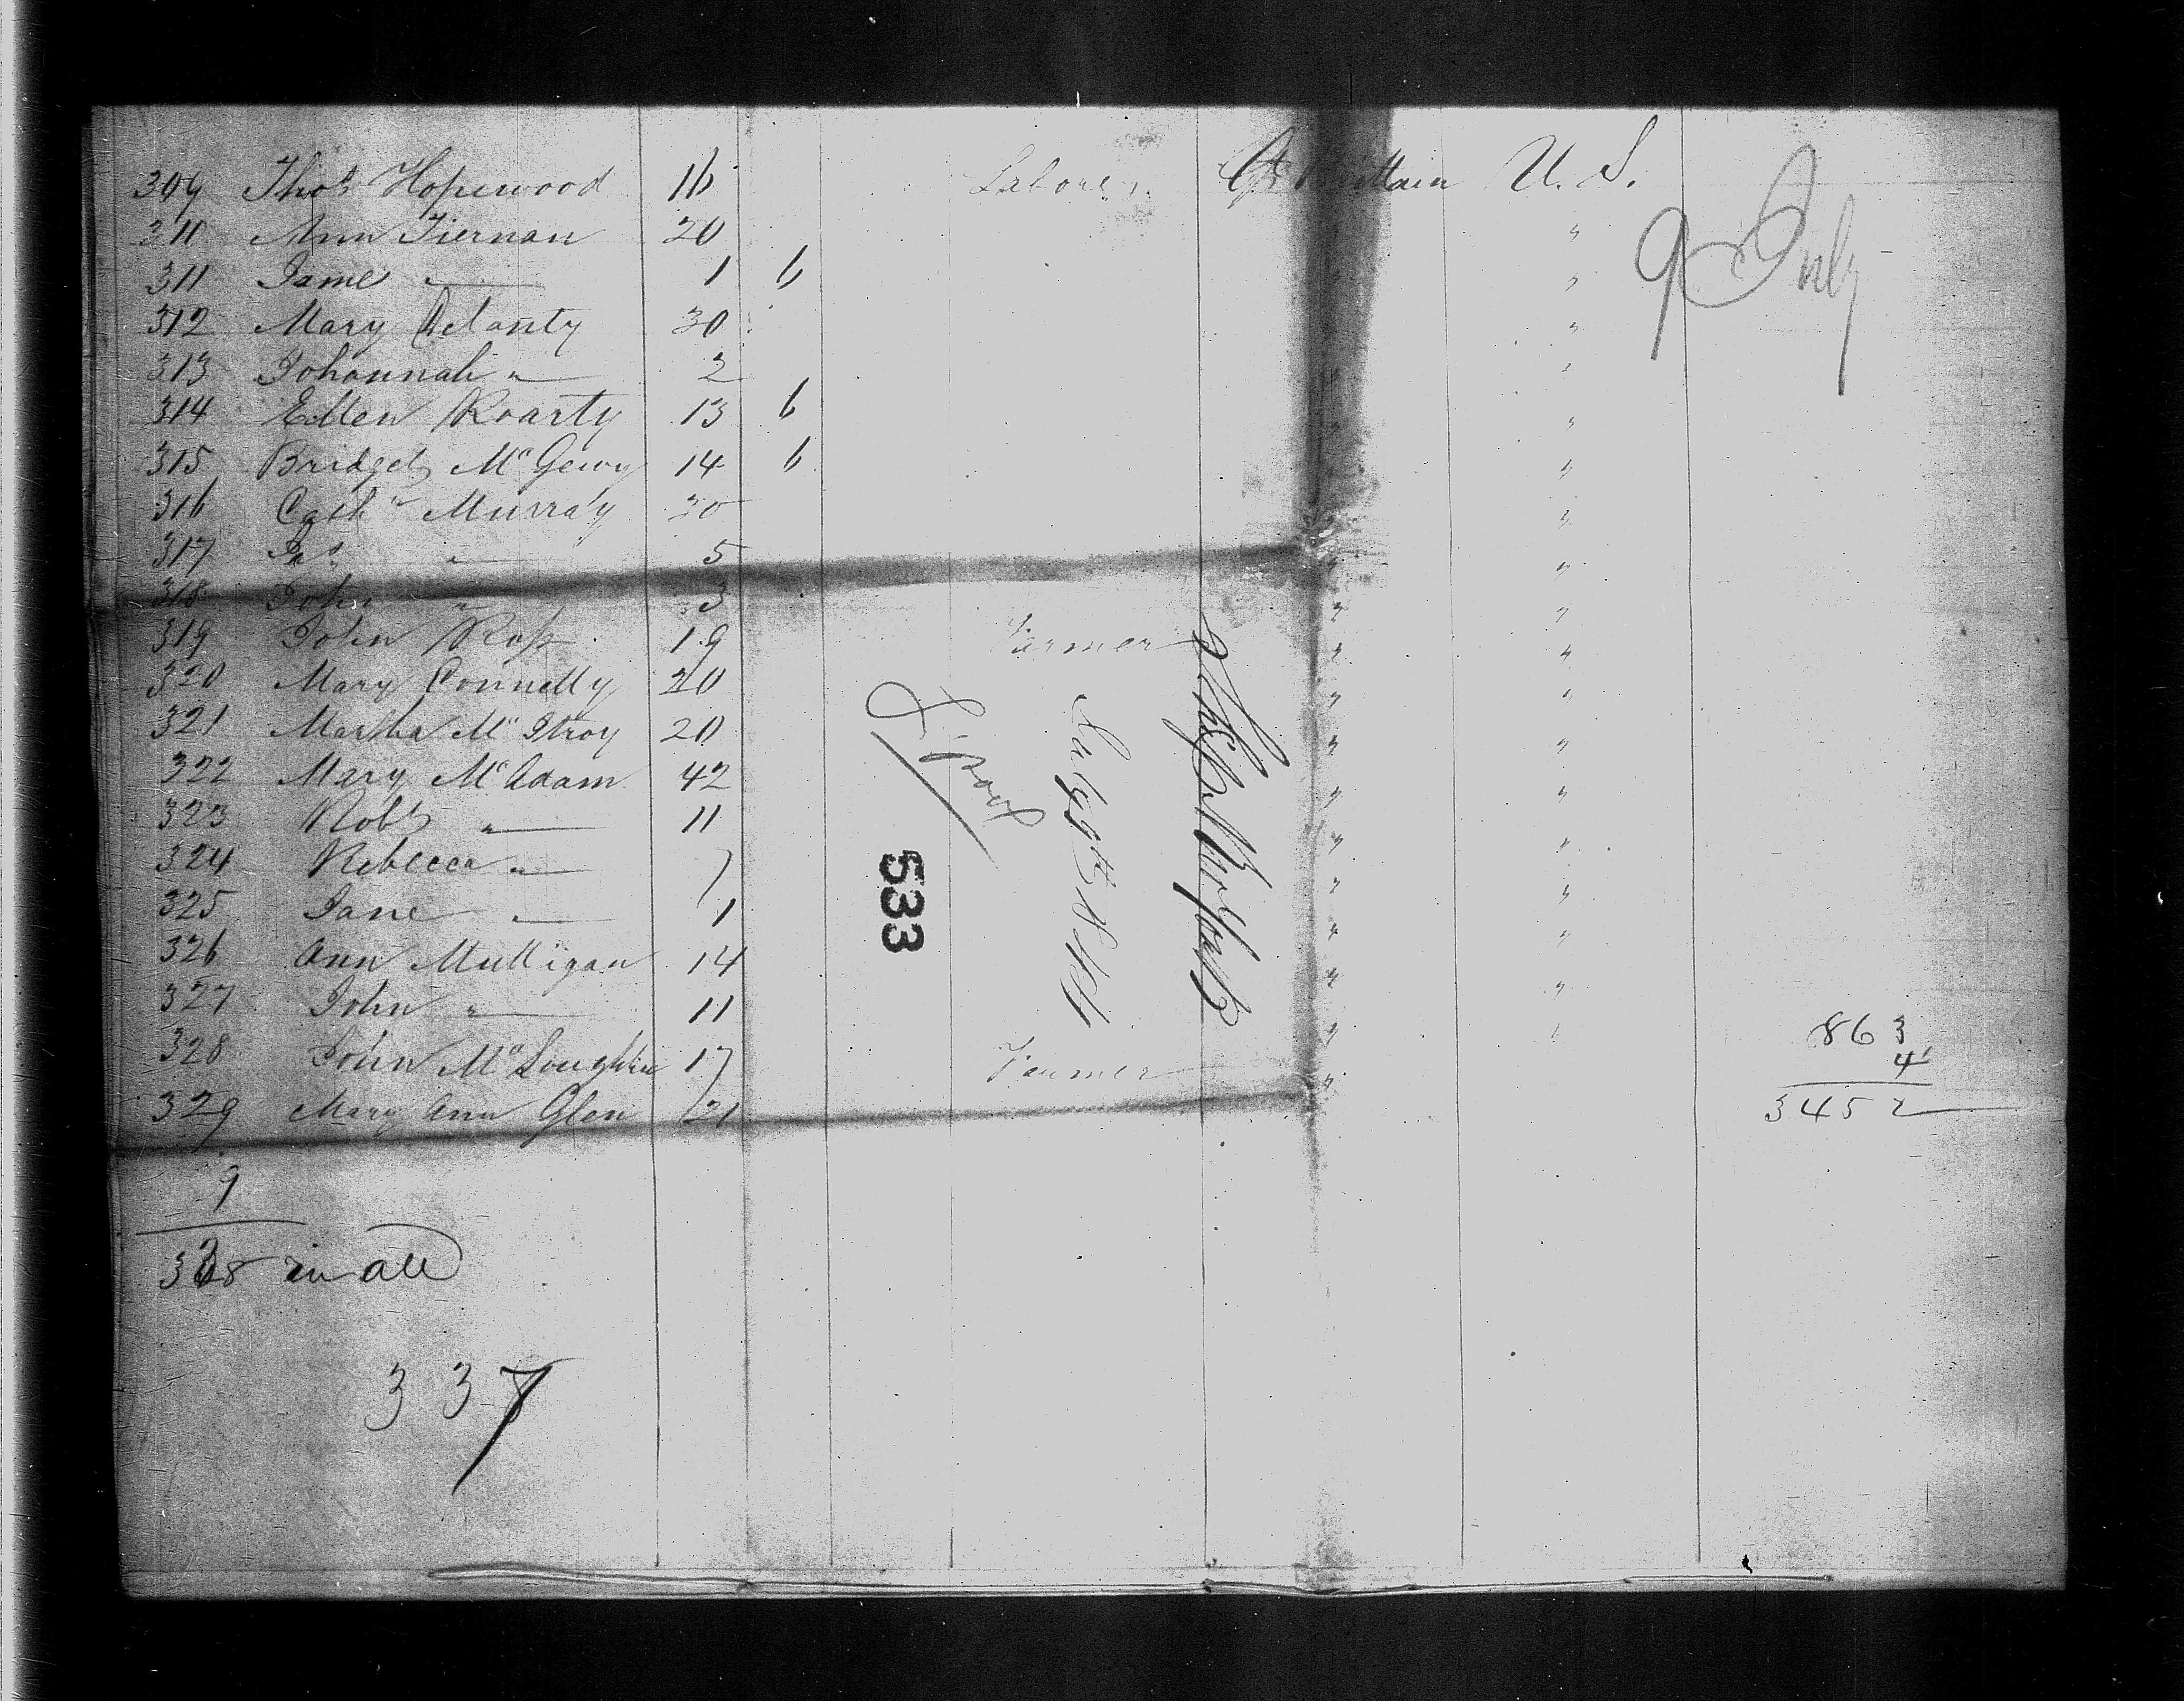 309 Thos Hopewood 16 Laborer Gt Brittain U. S.
310 Ann Tiernan 20 " "
311 Jame " 1 6 " "
312 Mary Delanty 30 " "
313 Johannah " 2 " "
314 Ellen Roarty 13 6 " "
315 Bridget Mc 14 6 " "
316 Cathn Murray 30 " "
317 Jas " 5 " "
318 John " 3 " "
319 John Ross 19 Farmer " "
320 Mary Connelly 20 " "
321 Martha Mc Ilroy 20 " "
322 Mary Mc Adam 42 " "
323 Robt " 11 " "
324 Rebecca " 7 " "
325 Jane " 1 " "
326 Ann Mulligan 14 " "
327 John " 11 " "
328 John Mc Loughlin 17 Farmer " "
329 Mary Ann Glen 21 "
9
338 in all
337
9 July
Ship
July 9th 1844
533
863
4
3452